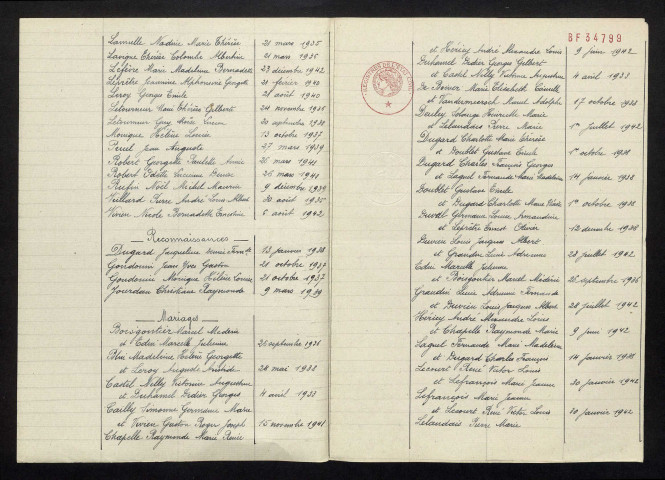 Lamelle Nadine Marie Thérèse 21 mars 1935
Lavigne Thérèse Colombe Albertine 21 mars 1935
Lefèvre Marie Madeleine Bernadette 23 décembre 1942
Leprêtre Jeannine Alphonsine Georgette 21 février 1940
Leroy Georges Emile 28 août 1940
Letourneur Marie Thérèse Gilberte 24 novembre 1936
Letourneur Guy 30 septembre 1938
Monique Hélène Louise 13 octobre 1937
Jean Auguste 27 mars 1939
Robert Georgette Paulette Annie 26 mars 1941
Robert Odette Lucienne Denise 26 mars 1941
Noël Michel Maurice 9 décembre 1939
Vuillard Pierre André Louis Albert 30 août 1935
Vivien Nicole Bernadette 6 août 1942
Reconnaissances
Dugard Jacqueline 13 janvier 1938
Gondouin Jean Yves Gaston 21 octobre 1937
Gondouin Monique Hélène Louise 21 octobre 1937
Jourdan Christiane Raymonde 9 mars 1939
Mariages
Boisgontier Marcel Médéric
et Edin Marcelle Julienne 26 septembre 1936
Madeleine Hélène Georgette
et Leroy Auguste Aristide 28 mai 1938
Cadel Nelly Victorine Augustine
et Duhamel Didier Georges 4 août 1933
Cailly Simonne Germaine Marie
et Vivien Gaston Roger Joseph 15 novembre 1941
Chapelle Raymonde Marie Renée
BF34799
et Héricy André Alexandre Louis 9 juin 1942
Duhamel Didier Georges Gilbert
et Cadel Nelly Victorine Augustine 4 août 1933
De Marie Elisabeth
et Vandermeersch Marcel Adolphe 17 octobre 1938
Solange Henriette Marie
et Lelandais Pierre Marie 1er juillet 1942
Dugard Charlotte Marie Thérèse
et Doublet Gustave Emile 1er octobre 1938
Dugard Charles François Georges
et Laquel Fernande Marie Madeleine 14 janvier 1938
Doublet Gustave Emile
et Dugard Charlotte Marie Thérèse 1er octobre 1938
Duval Germaine Louise Amandine
et Leprêtre Ernest Olivier 13 décembre 1938
Duvieu Louis Jacques Albert
et Grandin Lucie Adrienne 28 juillet 1942
Edin Marcelle Julienne
et Boisgontier Marcel Médéric 26 septembre 1936
Grandin Lucie Adrienne Fernande
et Duvieu Louis Jacques Albert 28 juillet 1942
Héricy André Alexandre Louis
et Chapelle Raymonde Marie 9 juin 1942
Laquel Fernande Marie Madeleine
et Dugard Charles François 14 janvier 1938
Lecourt René Victor Louis
et Lefrançois Marie Jeanne 30 janvier 1942
Lefrançois Marie Jeanne
et Lecourt René Victor Louis 30 janvier 1942
Lelandais Pierre Marie